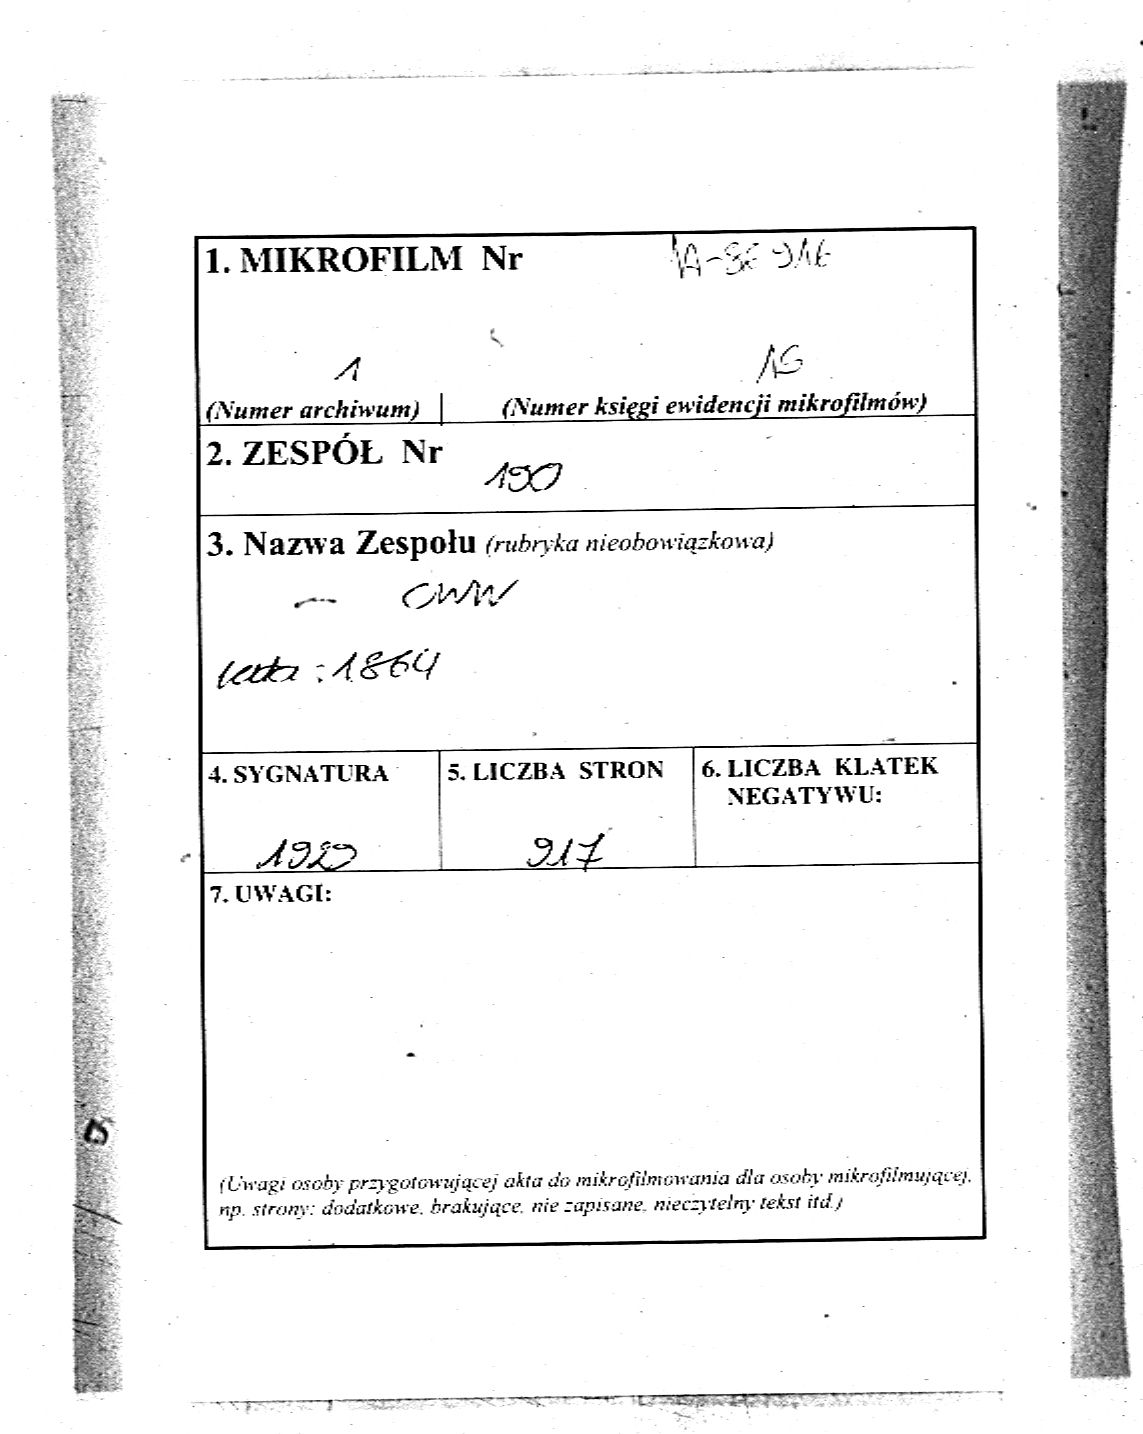 1. MIKROFILM Nr
1
15
(Numer archiwum) (Numer księgi ewidencji mikrofilmów)
2. ZESPÓŁ Nr
190
3. Nazwa Zespołu (rubryka nieobowiązkowa)
- CWW
lata : 1864
4. SYGNATURA 5. LICZBA STRON 6. LICZBA KLATEK
NEGATYWU:
917
7. UWAGI:
(Uwagi osoby przygotowującej akta do mikrofilmowania dla osoby mikrofilmującej,
np. strony: dodatkowe, brakujące, nie zapisane, nieczytelny tekst itd.)